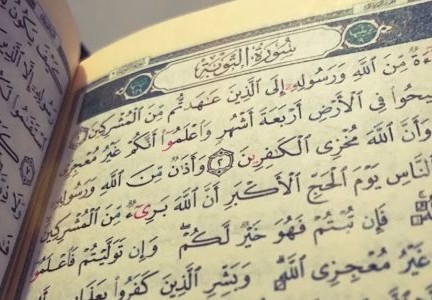 سُورَةُ التَّوْبَةِ
ءَةٌ مِّنَ ٱللَّهِ وَرَسُولِهِۦٓ إِلَى ٱلَّذِينَ عَٰهَدتُّم مِّنَ ٱلْمُشْرِكِينَ
سِيحُوا۟ فِى ٱلْأَرْضِ أَرْبَعَةَ أَشْهُرٍ وَٱعْلَمُوٓا۟ أَنَّكُمْ غَيْرُ مُعْجِزِى
وَأَنَّ ٱللَّهَ مُخْزِى ٱلْكَٰفِرِينَ ٢ وَأَذَٰنٌ مِّنَ ٱللَّهِ وَرَسُولِهِۦٓ
ٱلنَّاسِ يَوْمَ ٱلْحَجِّ ٱلْأَكْبَرِ أَنَّ ٱللَّهَ بَرِىٓءٌ مِّنَ ٱلْمُشْرِكِينَ
فَإِن تُبْتُمْ فَهُوَ خَيْرٌ لَّكُمْ وَإِن تَوَلَّيْتُمْ فَٱعْلَمُوٓا۟
غَيْرُ مُعْجِزِى ٱللَّهِ وَبَشِّرِ ٱلَّذِينَ كَفَرُوا۟ بِعَذَابٍ